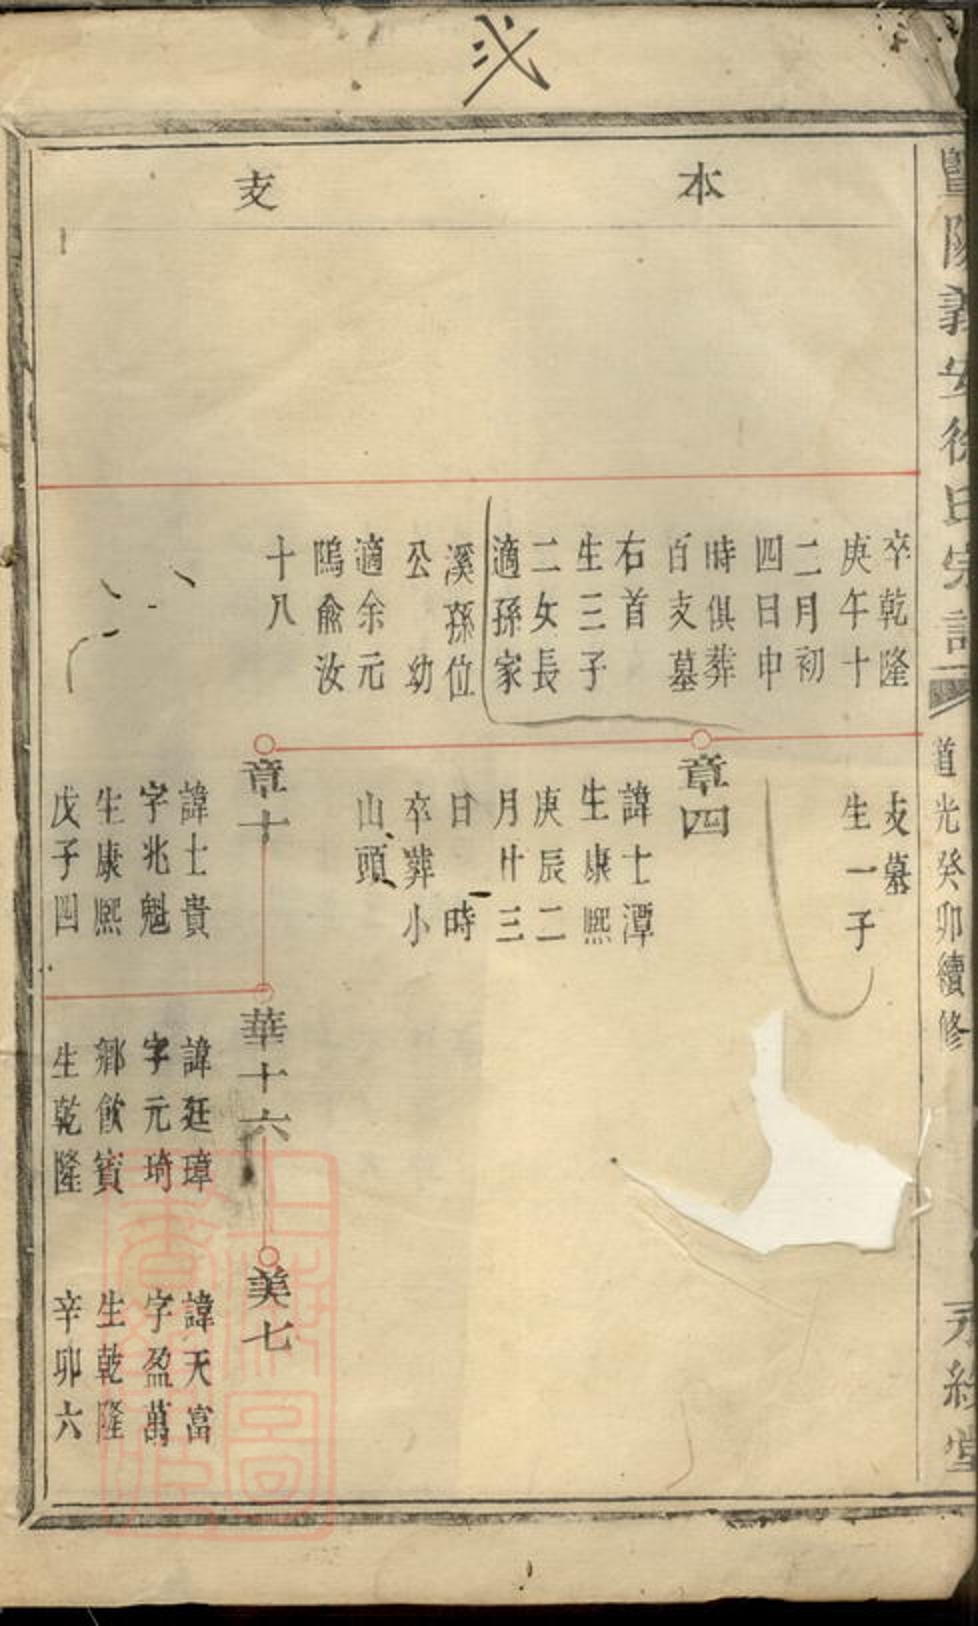 暨陽義安徐氏宗譜
道光癸卯續修
本
支
卒乾隆
庚午十
二月初
四日申
時俱葬
百支墓
右首
生三子
二女長
適孫家
溪孫位
公 幼
適余元
隖兪汝
十八
支墓
生一子
章四
諱士潭
生康熙
庚辰二
月廿三
日 時
卒葬小
山頭
章十
諱士貴
字兆魁
生康熙
戊子四
華十六
諱廷璋
字元琦
鄉飲賓
生乾隆
美七
諱天富
字盈萬
生乾隆
辛卯六